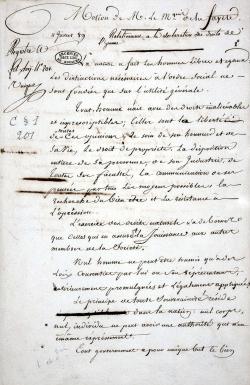 Motion de M. le Mis de la fayette
11 juillet 89
Relativement à la déclaration des droits de
l'homme
La nature a fait les hommes libres et égaux
les distinctions nécessaires à l'ordre social ne
sont fondées que sur l'utilité générale.
Tout homme naît avec des droits inaliénables
et imprescriptibles; telles sont la liberté
C § I
201
de ses opinions, le soin de son honneur et de
sa vie, le droit de propriété, la disposition
entière de sa personne, de son Industrie, de
toutes ses facultés, la communication de ses
pensées par tous les moyens possibles, la
recherche du bien être et la résistance à
l'oppression.
L'exercice des droits naturels n'a de bornes
que celles qui en assurent la jouissance aux autres
membres de la Société.
Nul homme ne peut être soumis qu'à des
Loix consenties par lui ou ses représentans,
antérieurement promulguées et légalement appliquées
Le principe de toute Souveraineté réside
dans la nation; nul corps,
nul individu ne peut avoir une autorité qui n'en
émane expressément.
Tout gouvernement a pour unique but le bien